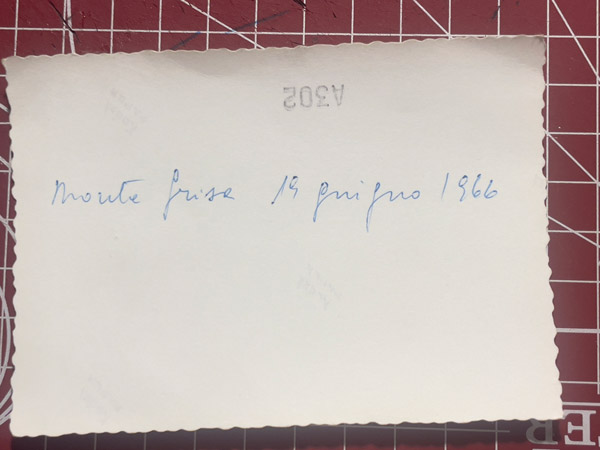 A302
Monte Grisa 19 giugno 1966